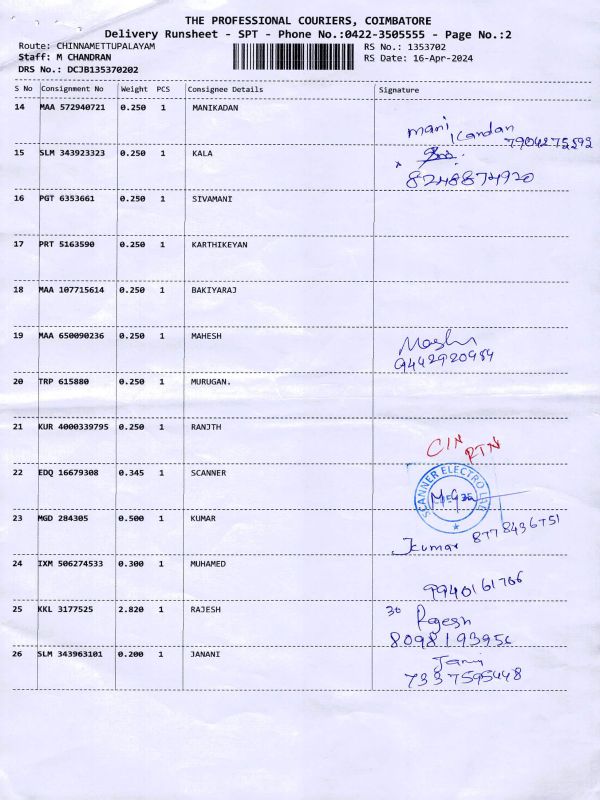 THE PROFESSIONAL COURIERS, COIMBATORE
Delivery Runsheet - SPT - Phone No.:0422-3505555 - Page No.:2
Route: CHINNAMETTUPALAYAM RS No.: 1353702
Staff: M CHANDRAN RS Date: 16-Apr-2024
DRS No.: DCJB135370202
S No Consignment No Weight PCS Consignee Details Signature
14 MAA 572940721 0.250 1 MANIKADAN
mani kandan
7904275592
15 SLM 343923323 0.250 1 KALA
8248874920
16 PGT 6353661 0.250 1 SIVAMANI
17 PRT 5163590 0.250 1 KARTHIKEYAN
18 MAA 107715614 0.250 1 BAKIYARAJ
19 MAA 650090236 0.250 1 MAHESH
9442920984
20 TRP 615880 0.250 1 MURUGAN.
21 KUR 4000339795 0.250 1 RANJTH
CIN RTN
22 EDQ 16679308 0.345 1 SCANNER
SCANNER ELECTRO LAB
23 MGD 284305 0.500 1 KUMAR
Jkumar 8778436751
24 IXM 506274533 0.300 1 MUHAMED
9940161766
25 KKL 3177525 2.820 1 RAJESH
30 Rajesh
8098193956
26 SLM 343963101 0.200 1 JANANI
Jani
7337595448